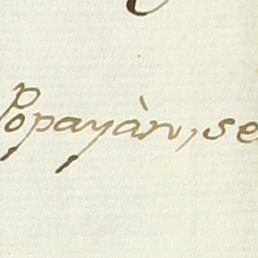 Popayàn, se